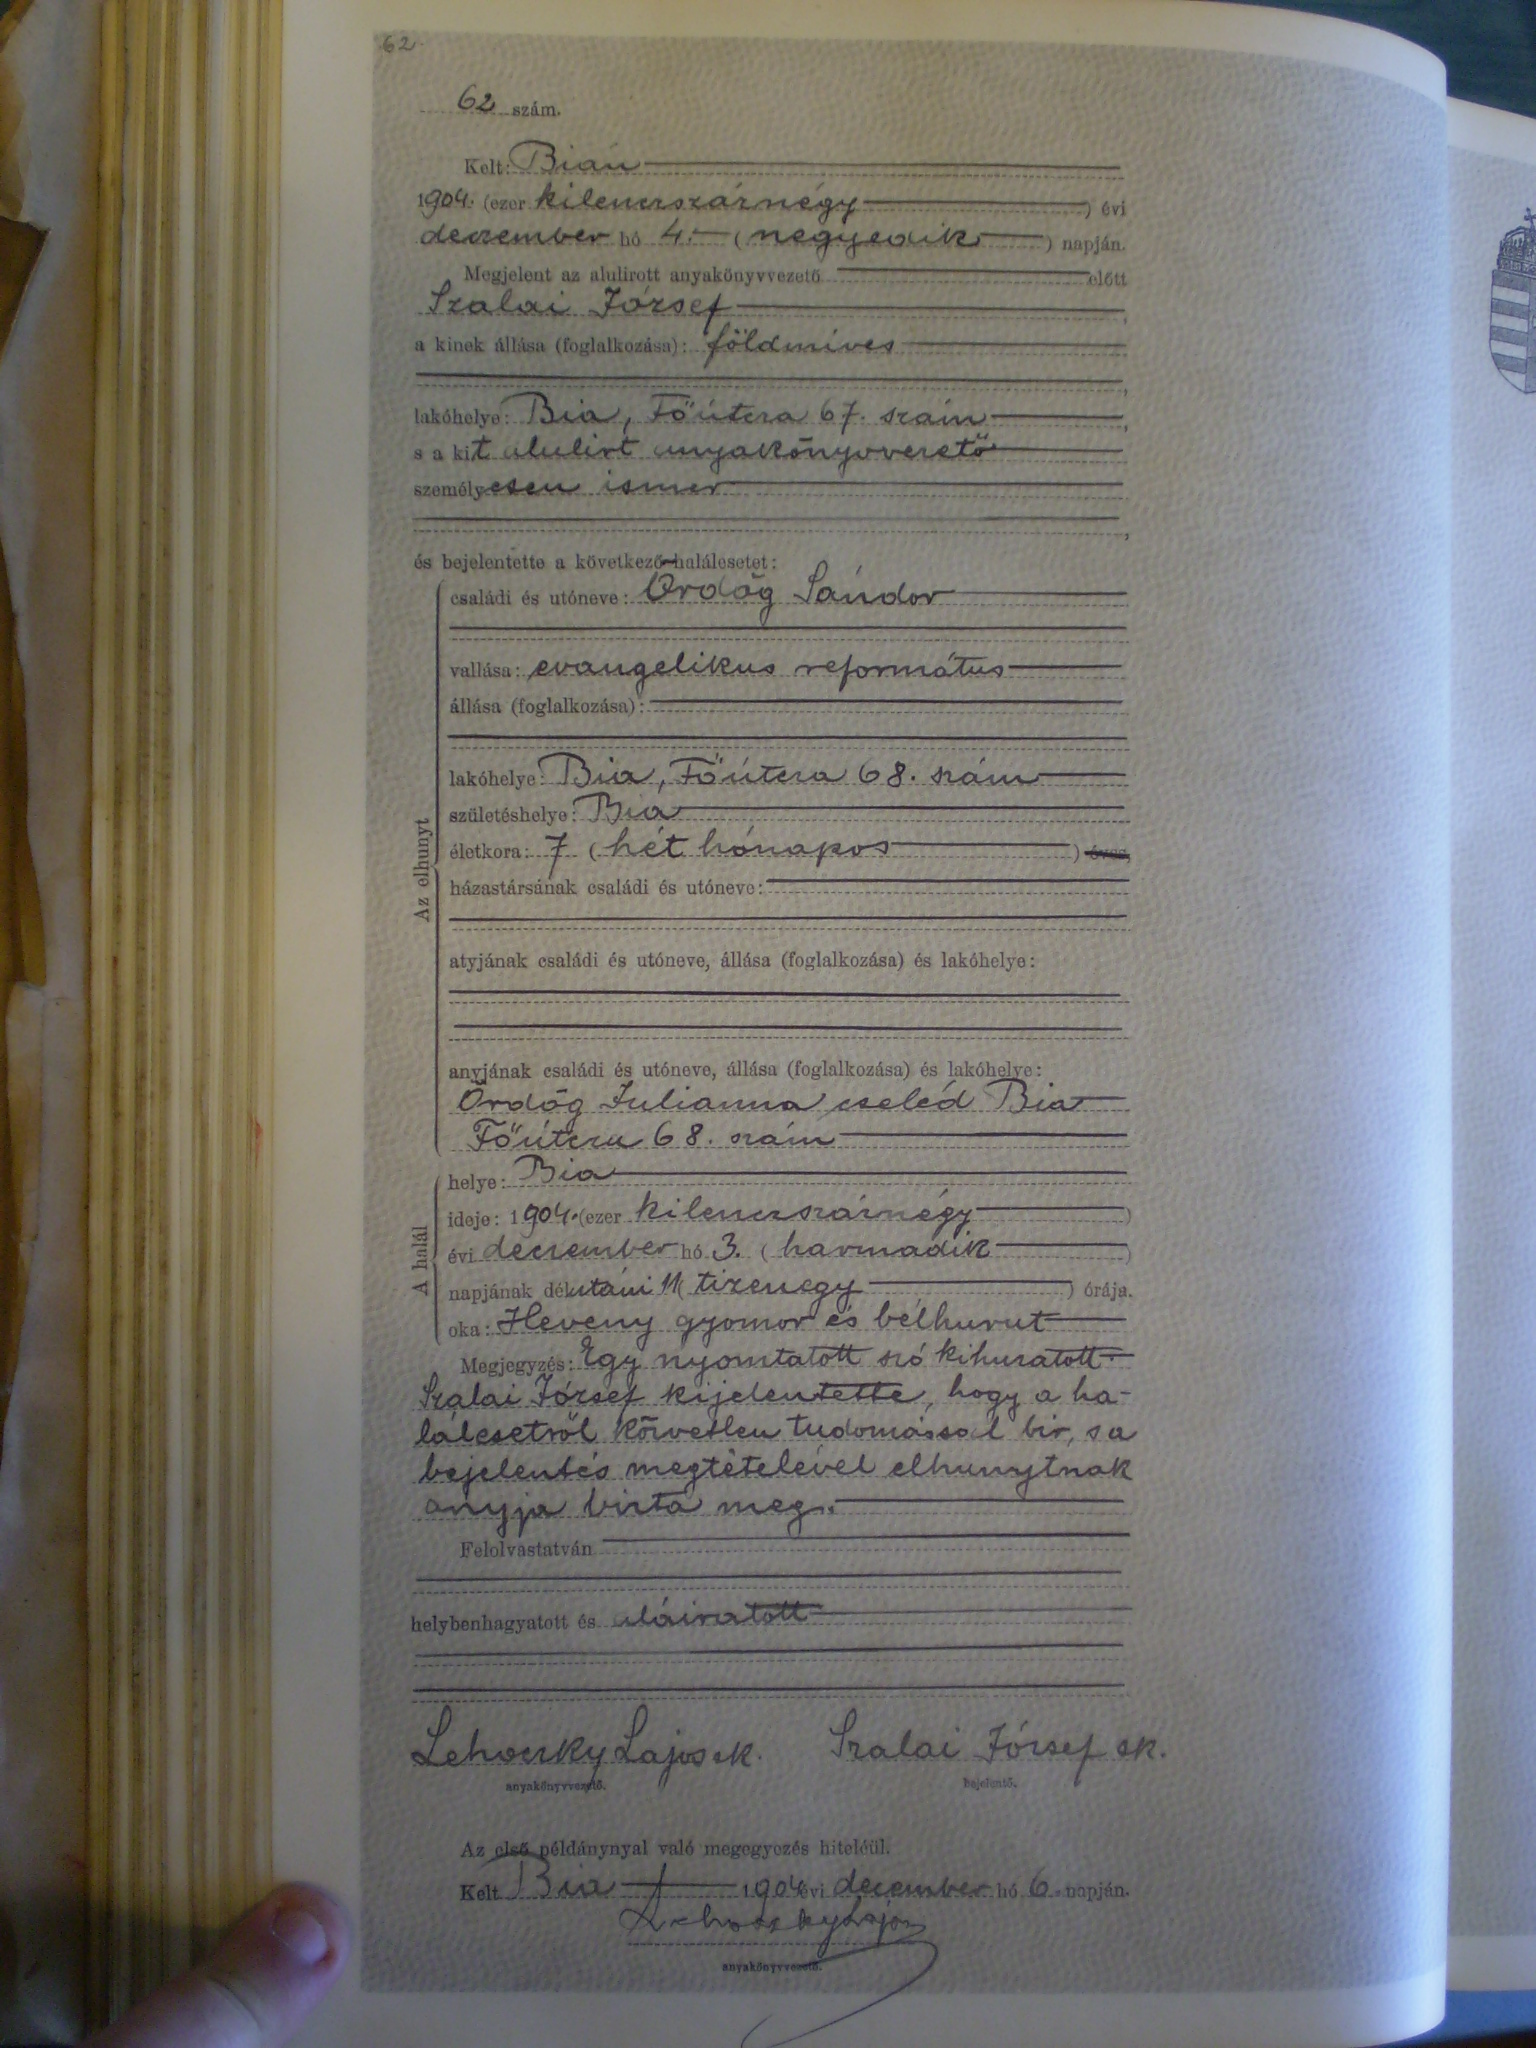 62.
62 szám.
Kelt: Bián
1904. (ezer kilencszáznégy) évi
december hó 4. (negyedik) napján.
Megjelent az alulirott anyakönyvvezető előtt
Szalai József,
a kinek állása (foglalkozása): földmíves
,
lakóhelye: Bia, Főútcza 67. szám,
s a kit alulirt anyakönyvvezető
személyesen ismer
,
és bejelentette a következő halálesetet:
Az elhunyt
családi és utóneve: Ördög Sándor
vallása: evangelikus református
állása (foglalkozása):
lakóhelye: Bia, Főútcza 68. szám
születéshelye: Bia
életkora: 7 (hét hónapos) éves,
házastársának családi és utóneve:
atyjának családi és utóneve, állása (foglalkozása) és lakóhelye:
anyjának családi és utóneve, állása (foglalkozása) és lakóhelye:
Ördög Julianna cseléd Bia
Főútcza 68. szám
A halál
helye: Bia
ideje: 1904. (ezer kilencszáznégy)
évi december hó 3. (harmadik)
napjának délutáni 11 (tizenegy) órája.
oka: Heveny gyomor és bélhurut
Megjegyzés: Egy nyomtatott szó kihuzatott.
Szalai József kijelentette, hogy a ha-
lálesetről közvetlen tudomással bir, s a
bejelentés megtételével elhunytnak
anyja bizta meg.
Felolvastatván
helybenhagyatott és aláiratott
Lehoczky Lajos sk. Szalai József sk.
anyakönyvvezető. bejelentő.
Az első példánynyal való megegyezés hiteléül.
Kelt Bia 1904 évi december hó 6. napján.
Lehoczky Lajos
anyakönyvvezető.